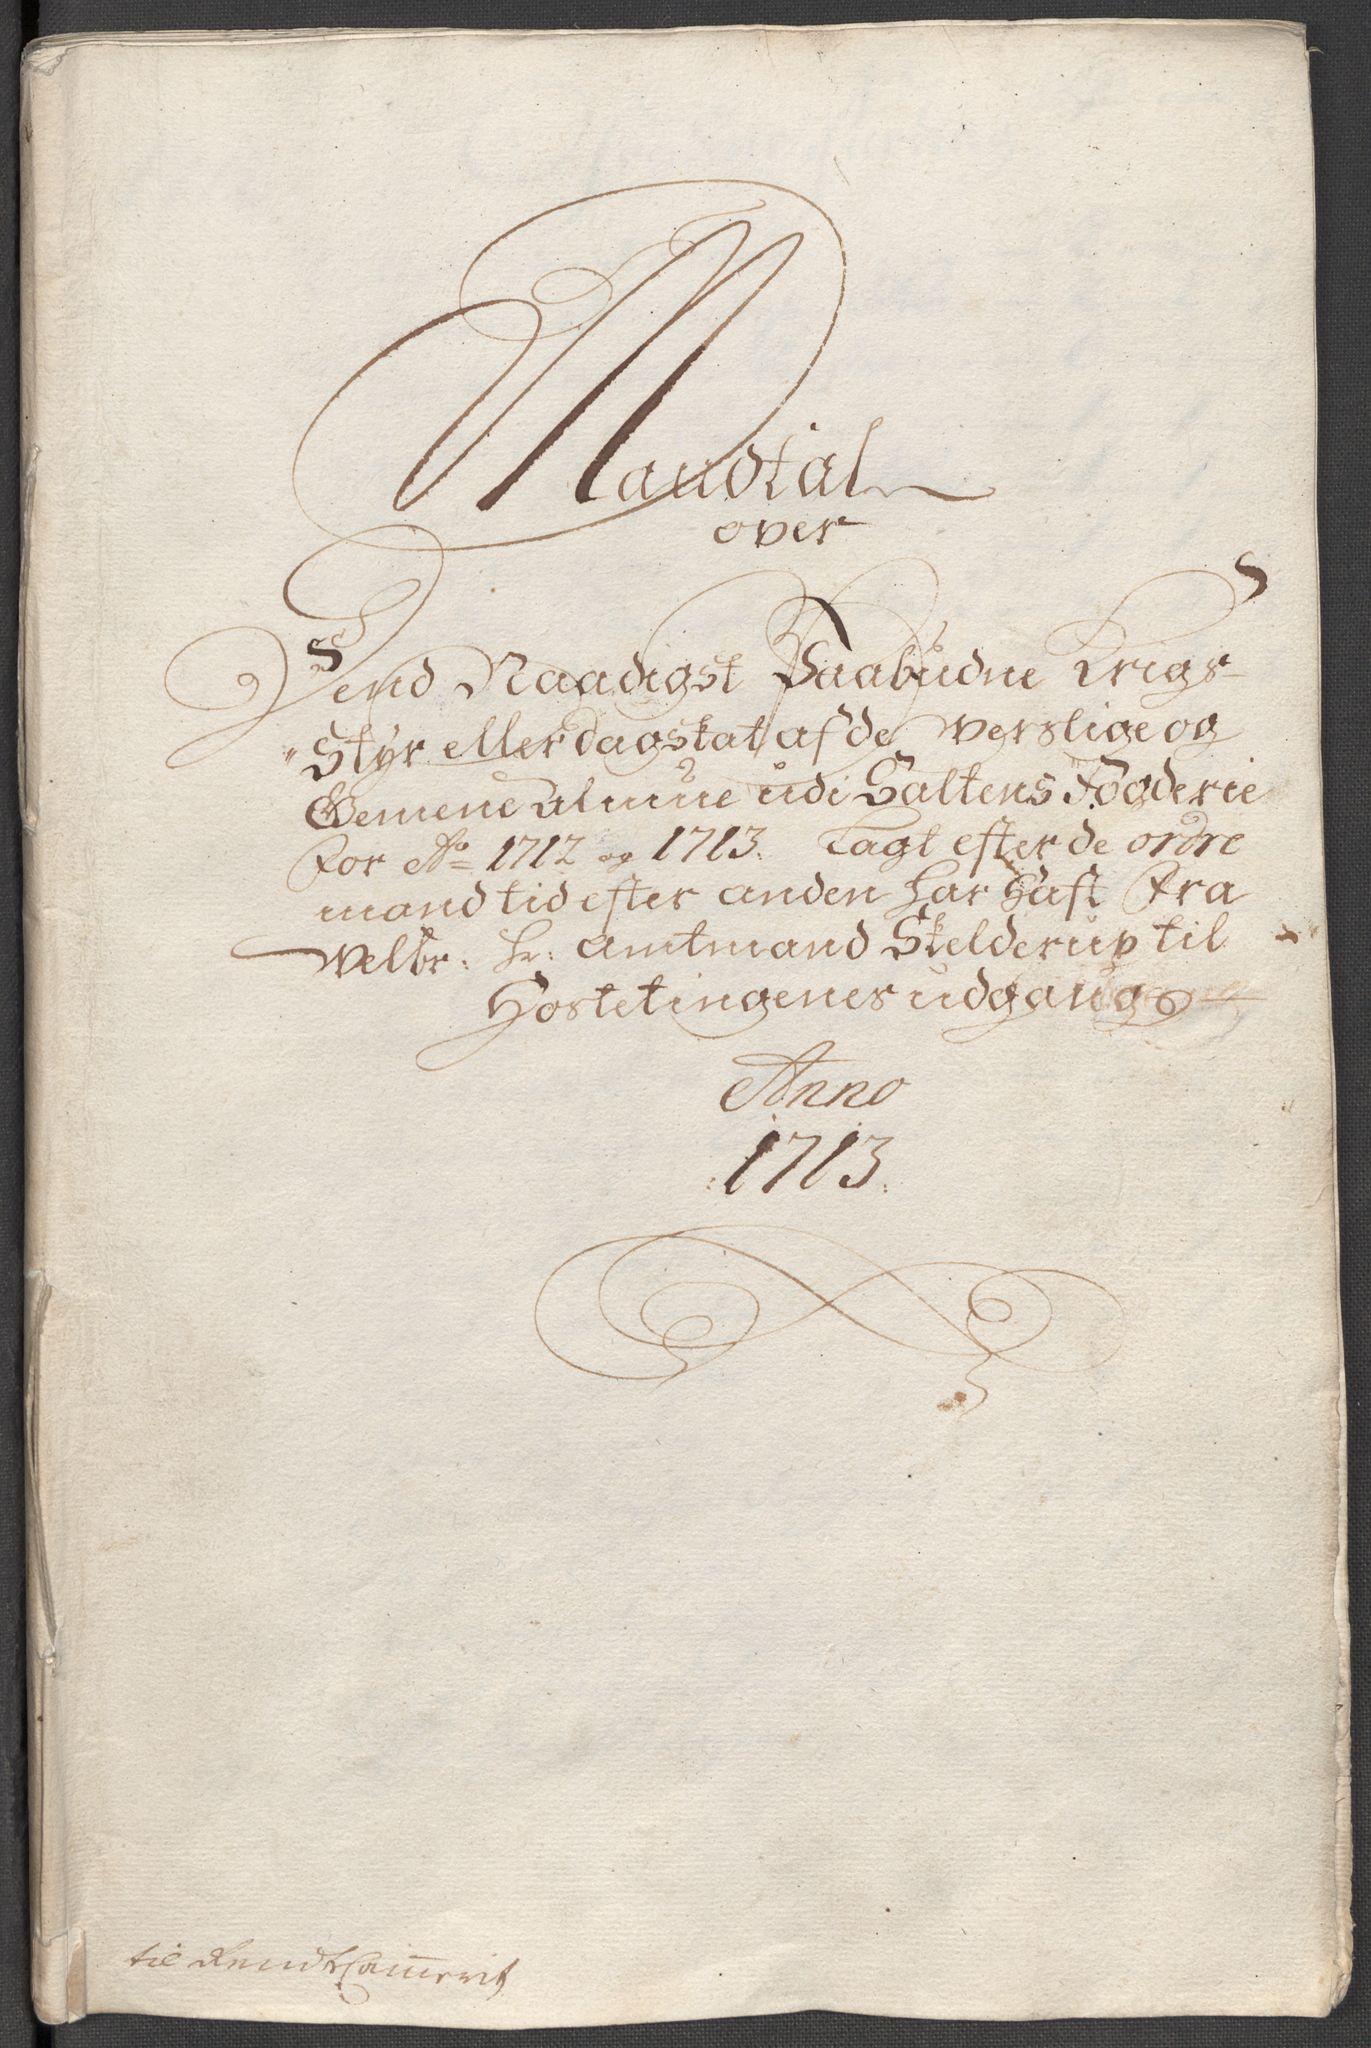 Mandtal
over
Dend Naadigst Paabudne Krigs-
Styr eller dagskat af de Verslige og
Gemene Almue udi Saltens Fogderie
for Ao 1712 og 1713. Tagt efter de ordre
mand tid efter anden har Haft Fra
Welbr: Hr: Amtmand Skelderup til
Hostetingenes udgang
Anno
1713.
til RendtCammerit